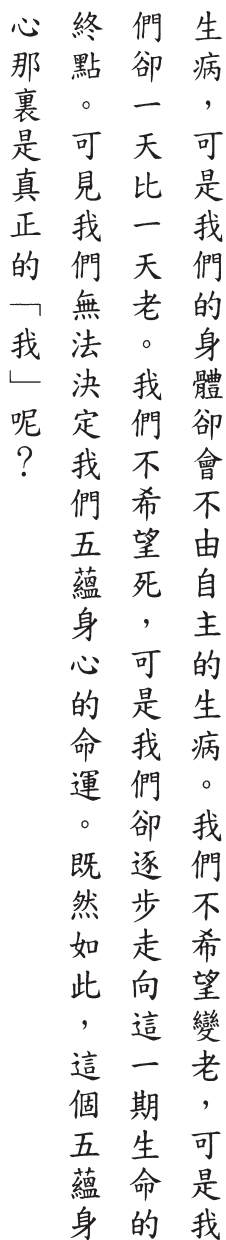 生病，可是我們的身體卻會不由自主的生病。我們不希望變老，可是我
們卻一天比一天老。我們不希望死，可是我們卻逐步走向這一期生命的
終點。可見我們無法決定我們五蘊身心的命運。既然如此，這個五蘊身
心那裏是真正的「我」呢？